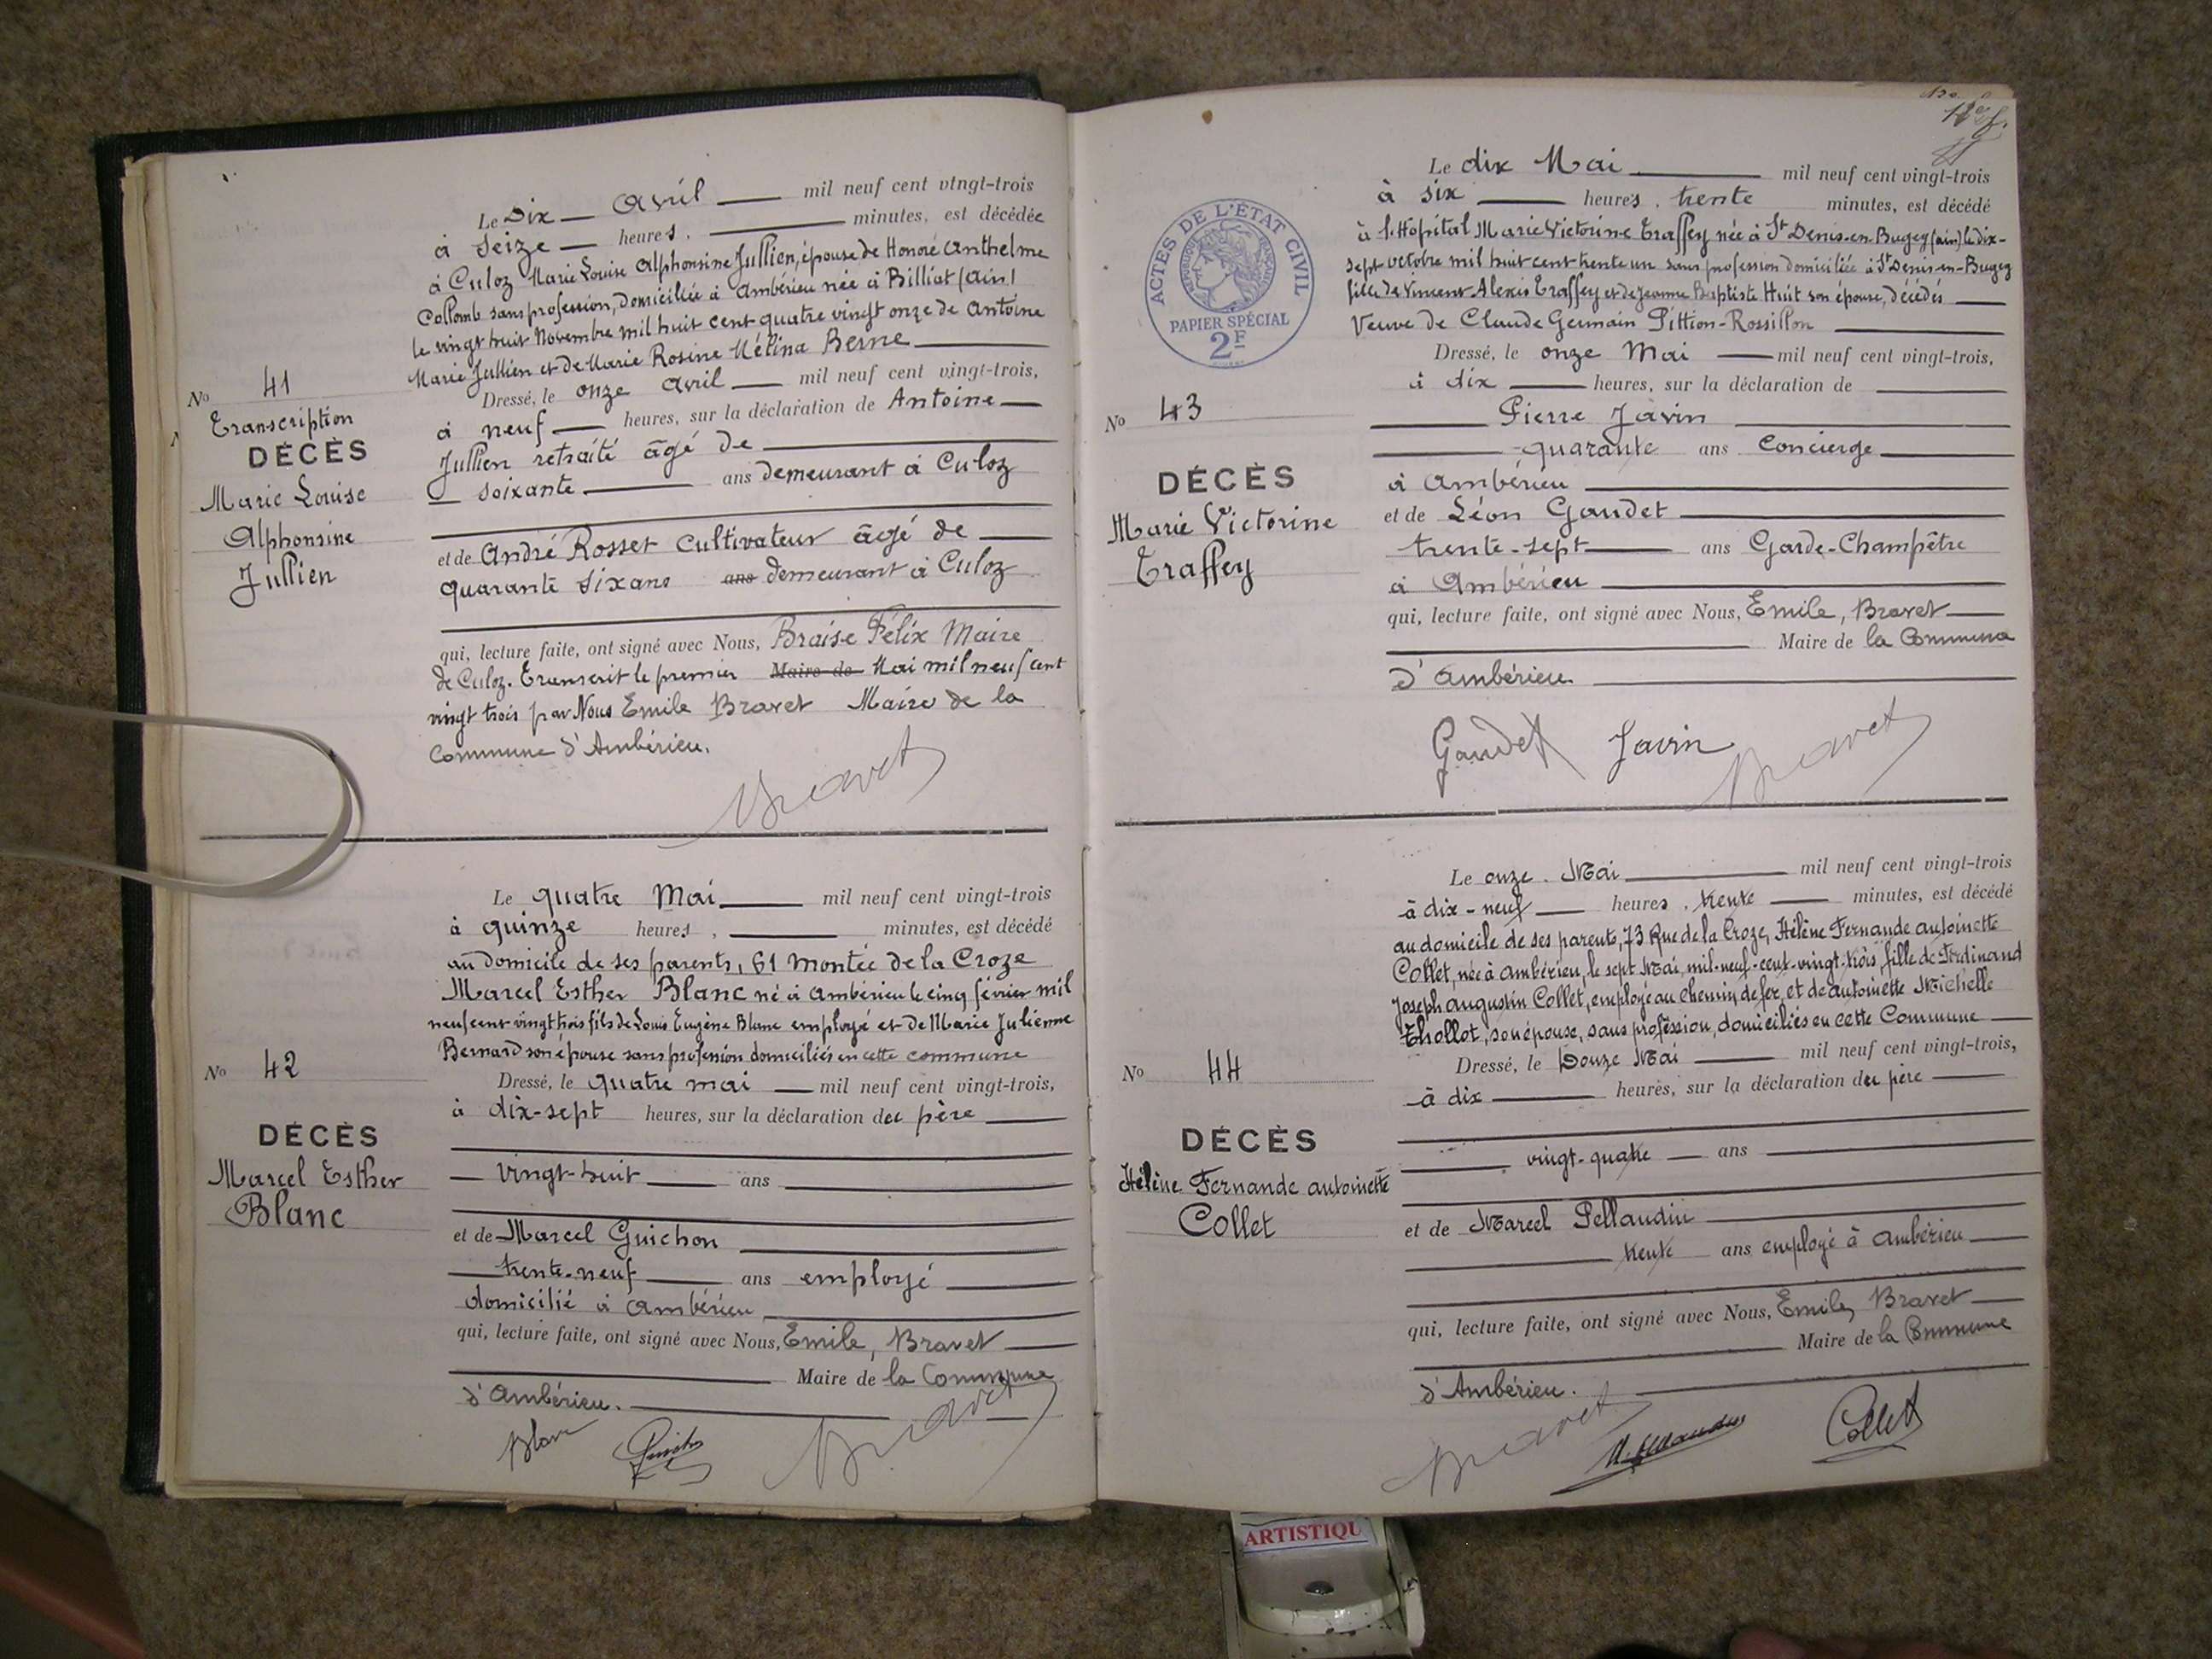 Le Dix Avril mil neuf cent vingt-trois
à Seize heures. minutes, est décédée
à Culoz Marie Louise Alphonsine Jullien, épouse de Honoré Anthelme
Collomb sans profession, domiciliée à Ambérieu née à Billiat (Ain)
le vingt huit Novembre mil huit cent quatre vingt onze de Antoine
Marie Jullien et de Marie Rosine Mélina Berne
Dressé, le onze Avril mil neuf cent vingt-trois,
à neuf heures, sur la déclaration de Antoine
Jullien retraité âgé de
soixante ans demeurant à Culoz
et de André Rosset Cultivateur âgé de
quarante six ans ans demeurant à Culoz
qui, lecture faite, ont signé avec Nous, Braise Félix Maire
de Culoz. Transcrit le premier Maire de Mai mil neuf cent
vingt trois par Nous Emile Bravet Maire de la
Commune d'Ambérieu.
Bravet
No 41
Transcription
DÉCÈS
Marie Louise
Alphonsine
Jullien
Le quatre Mai mil neuf cent vingt-trois
à quinze heures, minutes, est décédé
au domicile de ses parents, 61 Montée de la Croze
Marcel Esther Blanc né à Ambérieu le cinq février mil
neuf cent vingt trois fils de Louis Eugène Blanc employé et de Marie Julienne
Bernard son épouse sans profession domiciliés en cette commune
Dressé, le quatre mai mil neuf cent vingt-trois,
à dix-sept heures, sur la déclaration du père
vingt-huit ans
et de Marcel Guichon
trente-neuf ans employé
domicilié à Ambérieu
qui, lecture faite, ont signé avec Nous, Emile, Bravet
Maire de la Commune
d'Ambérieu.
Blanc Bravet
No 42
DÉCÈS
Marcel Esther
Blanc
ACTES DE L'ÉTAT CIVIL
RÉPUBLIQUE FRANÇAISE
PAPIER SPÉCIAL
2F
Le dix Mai mil neuf cent vingt-trois
à six heures, trente minutes, est décédé
à l'Hopital Marie Victorine Traffey née à St Denis-en-Bugey (ain) le dix-
sept octobre mil huit cent trente un sans profession domiciliée à St Denis-en-Bugey
fille de Vincent Alexis Traffey et de Jeanne Baptiste Huit son épouse, décédés
Veuve de Claude Germain Pittion-Rossillon
Dressé, le onze Mai mil neuf cent vingt-trois,
à dix heures, sur la déclaration de
Pierre Javin
quarante ans Concierge
à Ambérieu
et de Léon Gaudet
trente-sept ans Garde-Champêtre
à Ambérieu
qui, lecture faite, ont signé avec Nous, Emile, Bravet
Maire de la Commune
d'Ambérieu
Gaudet Javin Bravet
No 43
DÉCÈS
Marie Victorine
Traffey
Le onze. Mai mil neuf cent vingt-trois
à dix-neuf heures, trente minutes, est décédé
au domicile de ses parents, 73 Rue de la Croze, Hélène Fernande antoinette
Collet, née à Ambérieu, le sept Mai mil-neuf-cent-vingt-trois, fille de Ferdinand
Joseph augustin Collet, employé au Chemin de fer, et de antoinette Michelle
Thollot, son épouse, sans profession, domiciliés en cette Commune
Dressé, le Douze Mai mil neuf cent vingt-trois,
à dix heures, sur la déclaration du père
vingt-quatre ans
et de Marcel Pellaudin
trente ans employé à Ambérieu
qui, lecture faite, ont signé avec Nous, Emile, Bravet
Maire de la Commune
d'Ambérieu.
Bravet Collet
No 44
DÉCÈS
Hélène Fernande antoinette
Collet
ARTISTIQU